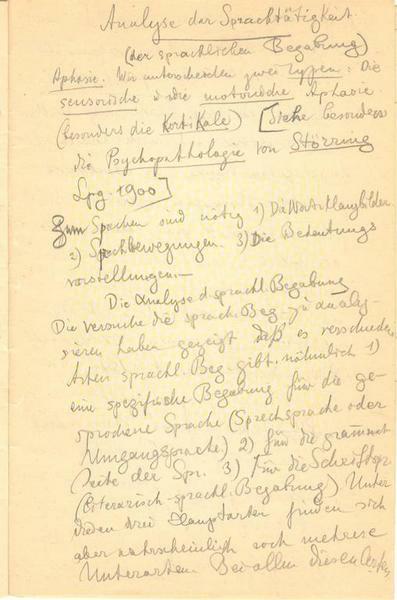 Analyse der Sprachtätigkeit
(der sprachlichen Begabung)
Aphasie. Wir unterscheiden zwei Typen: Die
sensorische & die motorische Aphasie
(besonders die Kortikale) [Siehe besonders
die Psychopathologie von Störring
Lpg. 1900]
Zum Spachen sind nötig 1) Die Wortklangbilder
2) Spchbewegungen. 3) Die Bedeutungs
vorstellungen.—
Die Analyse d. sprachl. Begabung
Die Versuche die sprach. Beg. zu analy-
sieren haben gezeigt daß es verschiedene
Arten sprachl. Beg. gibt, nähmlich 1)
eine spezifische Begabung für die ge-
sprochene Sprache (Sprechsprache oder
Umgangsprache) 2) für die grammat
Seite der Spr. 3) Für die Schriftspr
(literarisch-sprachl. Begabung) Unter
diesen drei Hauptarten finden sich
aber wahrscheinlich noch mehrere
Unterarten. Bei allen diesen Arten